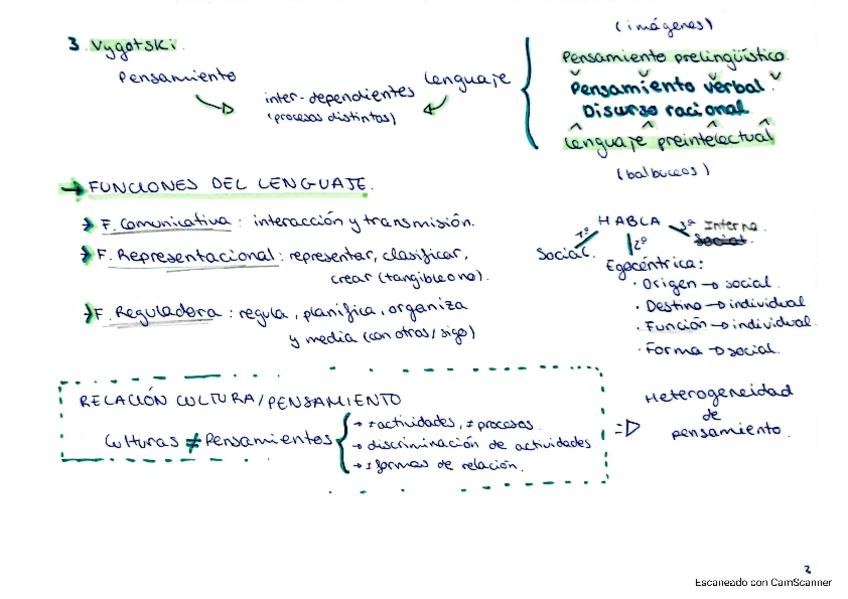 3. Vygotski.
Pensamiento
Lenguaje
inter-dependientes
(procesos distintos)
(imágenes)
Pensamiento prelingüístico.
Pensamiento verbal.
Disurso racional
Lenguaje preintelectual
(balbuceos)
→ FUNCIONES DEL LENGUAJE.
→ F. Comunicativa: interacción y transmisión.
→ F. Representacional: representar, clasificar,
crear (tangible o no).
→ F. Reguladora: regula, planifica, organiza
y media (con otros/sigo)
HABLA
1º
Social.
2º
Egocéntrica:
· Origen → social.
· Destino → individual
· Función → individual.
· Forma → social.
3º Interna
Social
RELACIÓN CULTURA/PENSAMIENTO
Culturas ≠ Pensamientos
→ ≠ actividades, ≠ procesos.
→ discriminación de actividades
→ ≠ formas de relación.
⇒ Heterogeneidad
de
pensamiento.
2
Escaneado con CamScanner